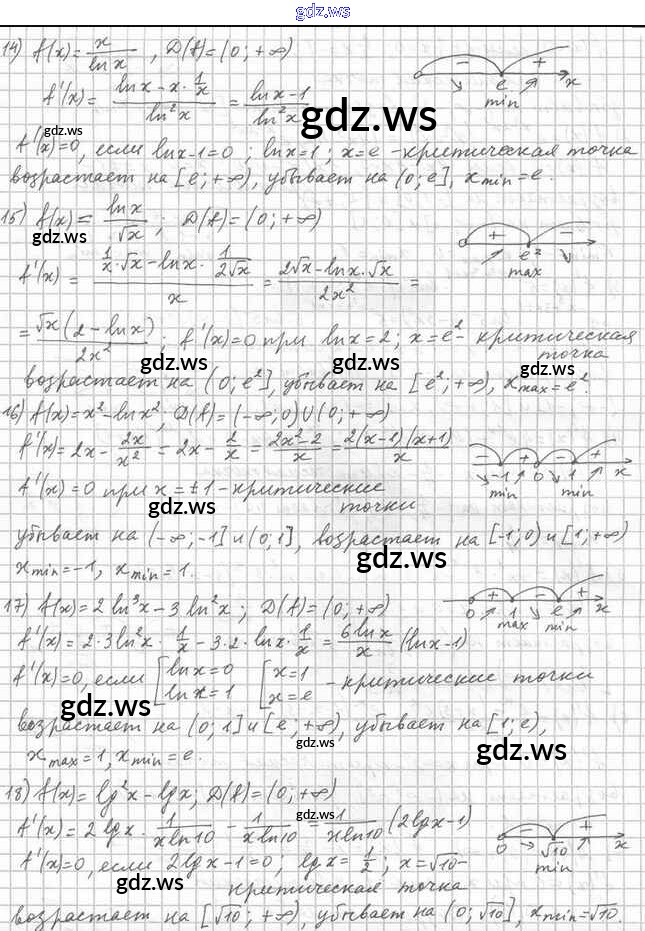 gdz.ws
14) f(x) = x / ln x , D(f) = (0; +∞)
f'(x) = (ln x - x · 1/x) / ln²x = (ln x - 1) / ln²x
- + e min x
gdz.ws
gdz.ws
f'(x) = 0, если ln x - 1 = 0 ; ln x = 1 ; x = e - критическая точка
возрастает на [e; +∞), убывает на (0; e], x min = e.
15) f(x) = ln x / √x ; D(f) = (0; +∞)
gdz.ws
+ - e² max
gdz.ws
f'(x) = (1/x · √x - ln x · 1/(2√x)) / x = (2√x - ln x · √x) / 2x² =
= √x(2 - ln x) / 2x² ; f'(x) = 0 при ln x = 2 ; x = e² - критическая
точка
gdz.ws gdz.ws gdz.ws
возрастает на (0; e²], убывает на [e²; +∞), x max = e².
16) f(x) = x² - ln x² ; D(f) = (-∞; 0) ∪ (0; +∞)
f'(x) = 2x - 2x/x² = 2x - 2/x = (2x² - 2)/x = 2(x - 1)(x + 1)/x
- + - + -1 0 1 x
min min
f'(x) = 0 при x = ±1 - критические
точки
gdz.ws
убывает на (-∞; -1] и (0; 1], возрастает на [-1; 0) и [1; +∞)
gdz.ws
x min = -1, x min = 1.
17) f(x) = 2 ln³x - 3 ln²x ; D(f) = (0; +∞)
+ - + 0 1 e x
max min
f'(x) = 2 · 3 ln²x · 1/x - 3 · 2 · ln x · 1/x = 6 ln x / x (ln x - 1)
f'(x) = 0, если [ ln x = 0 [ x = 1 - критические точки
ln x = 1 x = e
gdz.ws
возрастает на (0; 1] и [e; +∞), убывает на [1; e),
gdz.ws
gdz.ws
x max = 1, x min = e.
18) f(x) = lg²x - lg x ; D(f) = (0; +∞)
gdz.ws
f'(x) = 2 lg x · 1/(x ln 10) - 1/(x ln 10) = 1/(x ln 10) (2 lg x - 1)
- + 0 √10 x
min
f'(x) = 0, если 2 lg x - 1 = 0 ; lg x = 1/2 ; x = √10 -
gdz.ws
критическая точка
возрастает на [√10; +∞), убывает на (0; √10], x min = √10.